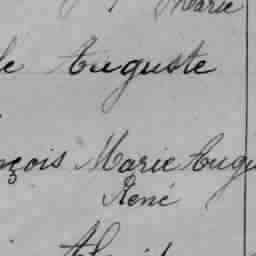 Marie
le Auguste
nçois Marie Augu
René